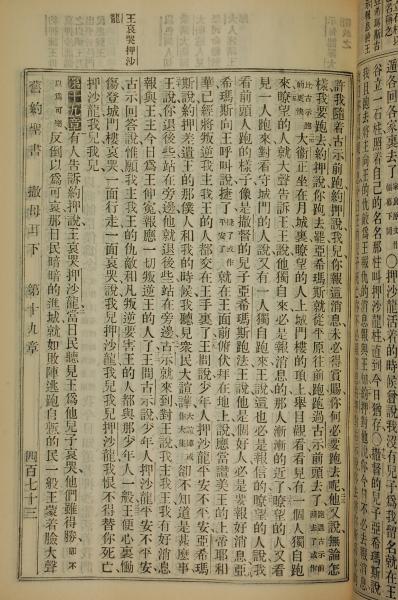 遁各回各家裏去了
谷立一石柱照着自己的名名那石柱叫押沙龍柱直到今日猶存撒督的兒子亞希瑪斯
許我隨着古示前跑約押說我兒你報這消息未必得賞賜你何必要跑去呢他又說無論怎
樣我要跑去約押說你跑去罷亞希瑪斯就從平原往前跑跑過古示前頭去了
大衛正坐在月城裏瞭望的人上城門樓的頂上舉目觀看看見有一個人獨自跑
來瞭望的人就大聲告訴王王說他獨自來必是報消息的那人漸漸的近了瞭望的人又看
見一人跑來對看守城門的人說又有一人獨自跑來王說這也必是報信的瞭望的人說我
看前頭人跑的樣子像是撒督的兒子亞希瑪斯跑法王說他是個好人必是要報好消息亞
希瑪斯向王呼叫說捷了捷了或作平安了就在王面前俯伏拜在地上說應當讚美王的上帝耶和
華已經將叛逆我主我王的人都交在王手裏了王問說少年人押沙龍平安不平安亞希瑪
斯說約押差遣王的那僕人和我的時候我聽見衆民大諠譁大諠譁或作大集卻不知道是甚麼事
王說你退後些站在旁邊他就退後些站在旁邊古示就來到對王說我主我王我有好消息
報與王王今日爲王伸冤報應一切叛逆王的人了王問古示說少年人押沙龍平安不平安
古示回答說惟願我主我王的仇敵和凡叛逆要害王的人都與那少年人一般王便心裏慟
傷登城門樓哀哭一面行走一面哀哭說我兒押沙龍我兒我兒押沙龍我恨不得替你死亡
押沙龍我兒我兒
第十九章有人告訴約押說王哀哭押沙龍當日民聽見王爲他兒子哀哭他們雖得勝即不
以爲可樂反倒以爲可哀那日民暗暗的進城就如敗陣逃跑自慙的民一般王蒙着臉大聲
舊約聖書 撒母耳下 第十九章 四百七十三
王哀哭押沙龍